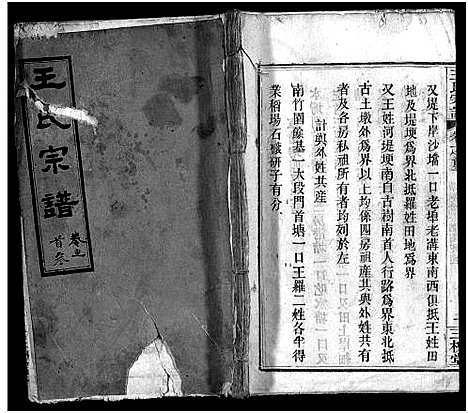 王氏宗譜
卷之
首叁
又堤下岸沙壋一口老埠老溝東南西俱抵王姓田
地及堤埂為界北抵羅姓田地為界
又王姓河堤埂南自古樹南首人行路為界東北抵
古土墩外為界以上均係四房祖產其與外姓共有
者及各房私祖所有者均列於左
計與外姓共產
南竹園䲅基一大段門首塘一口王羅二姓各半得
業稻場石磙研子有分
三槐堂